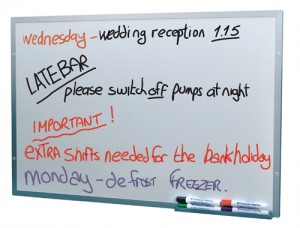 wednesday - wedding reception 1.15
LATE BAR
please switch off pumps at night
IMPORTANT!
eXTRA shifts needed for the bank holiday
monday - defrost FREEZER.